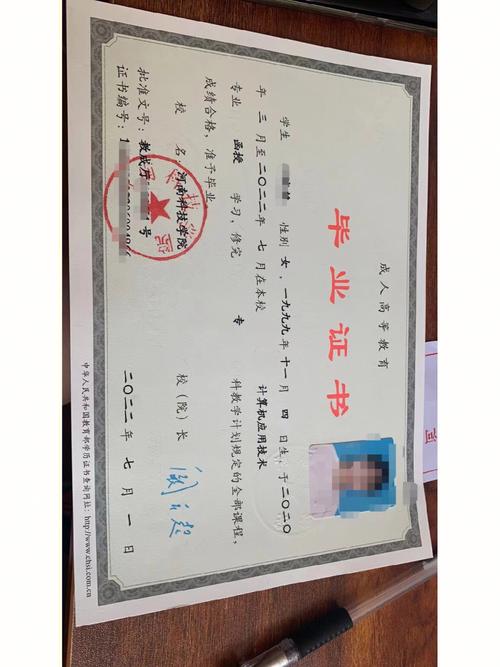 成人高等教育
毕业证书
学生 性别 女，一九九九年 十一月 四 日生，于二〇二〇
年 三 月至二〇二二年 七 月在本校 计算机应用技术
专业 函授 学习，修完 专 科教学计划规定的全部课程，
成绩合格，准予毕业。
校 名：河南科技学院 校（院）长
批准文号：教成厅 号
证书编号：1 二〇二二年 七 月 一 日
中华人民共和国教育部学历证书查询网址：http://www.chsi.com.cn